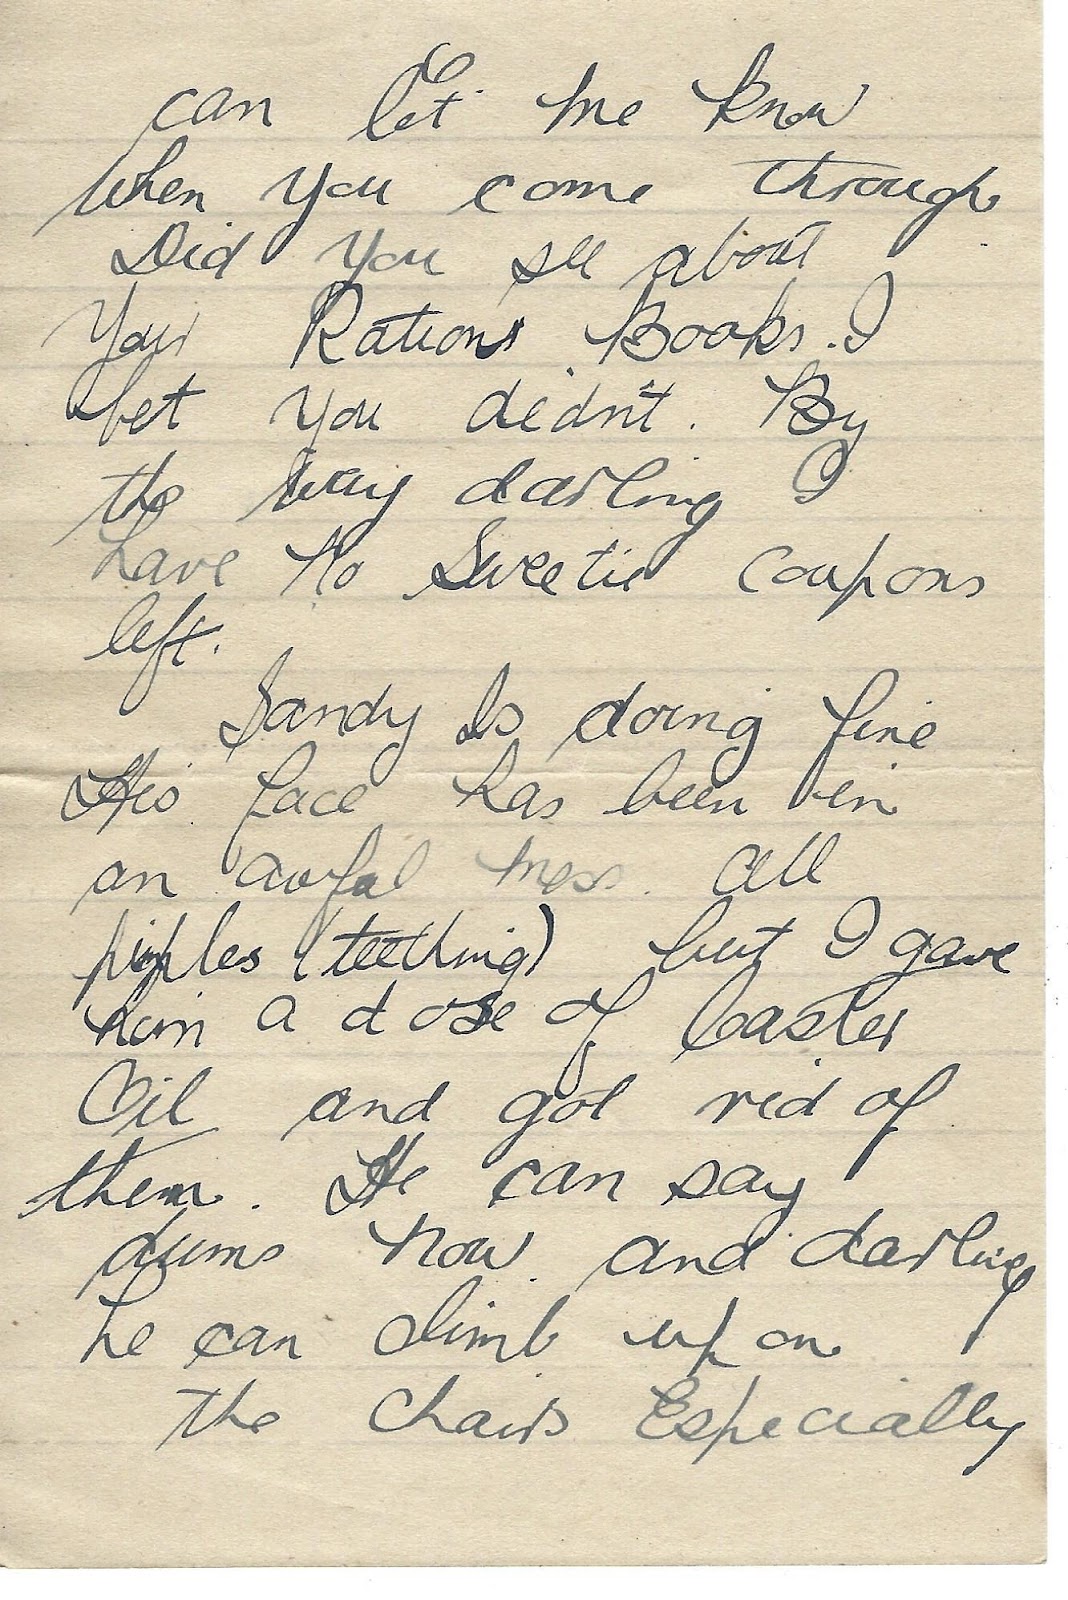 can let me know
when you come through
Did you see about
Your Rations Books. I
bet you didn't. By
the way darling I
have No Sweetie coupons
left.
Sandy Is doing fine
His face has been in
an awful mess. all
pimples (teething) but I gave
him a dose of Caster
Oil and got rid of
them. He can say
dums now. and darling
he can climb up on
the Chairs Especially